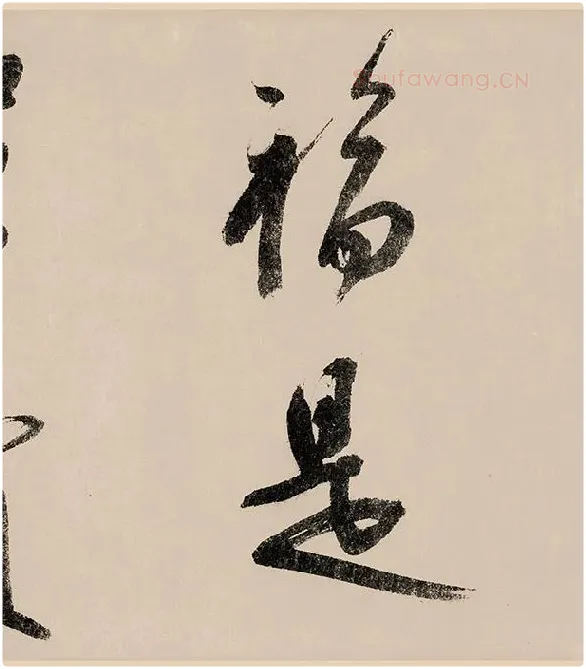 福是
Shufawang.CN